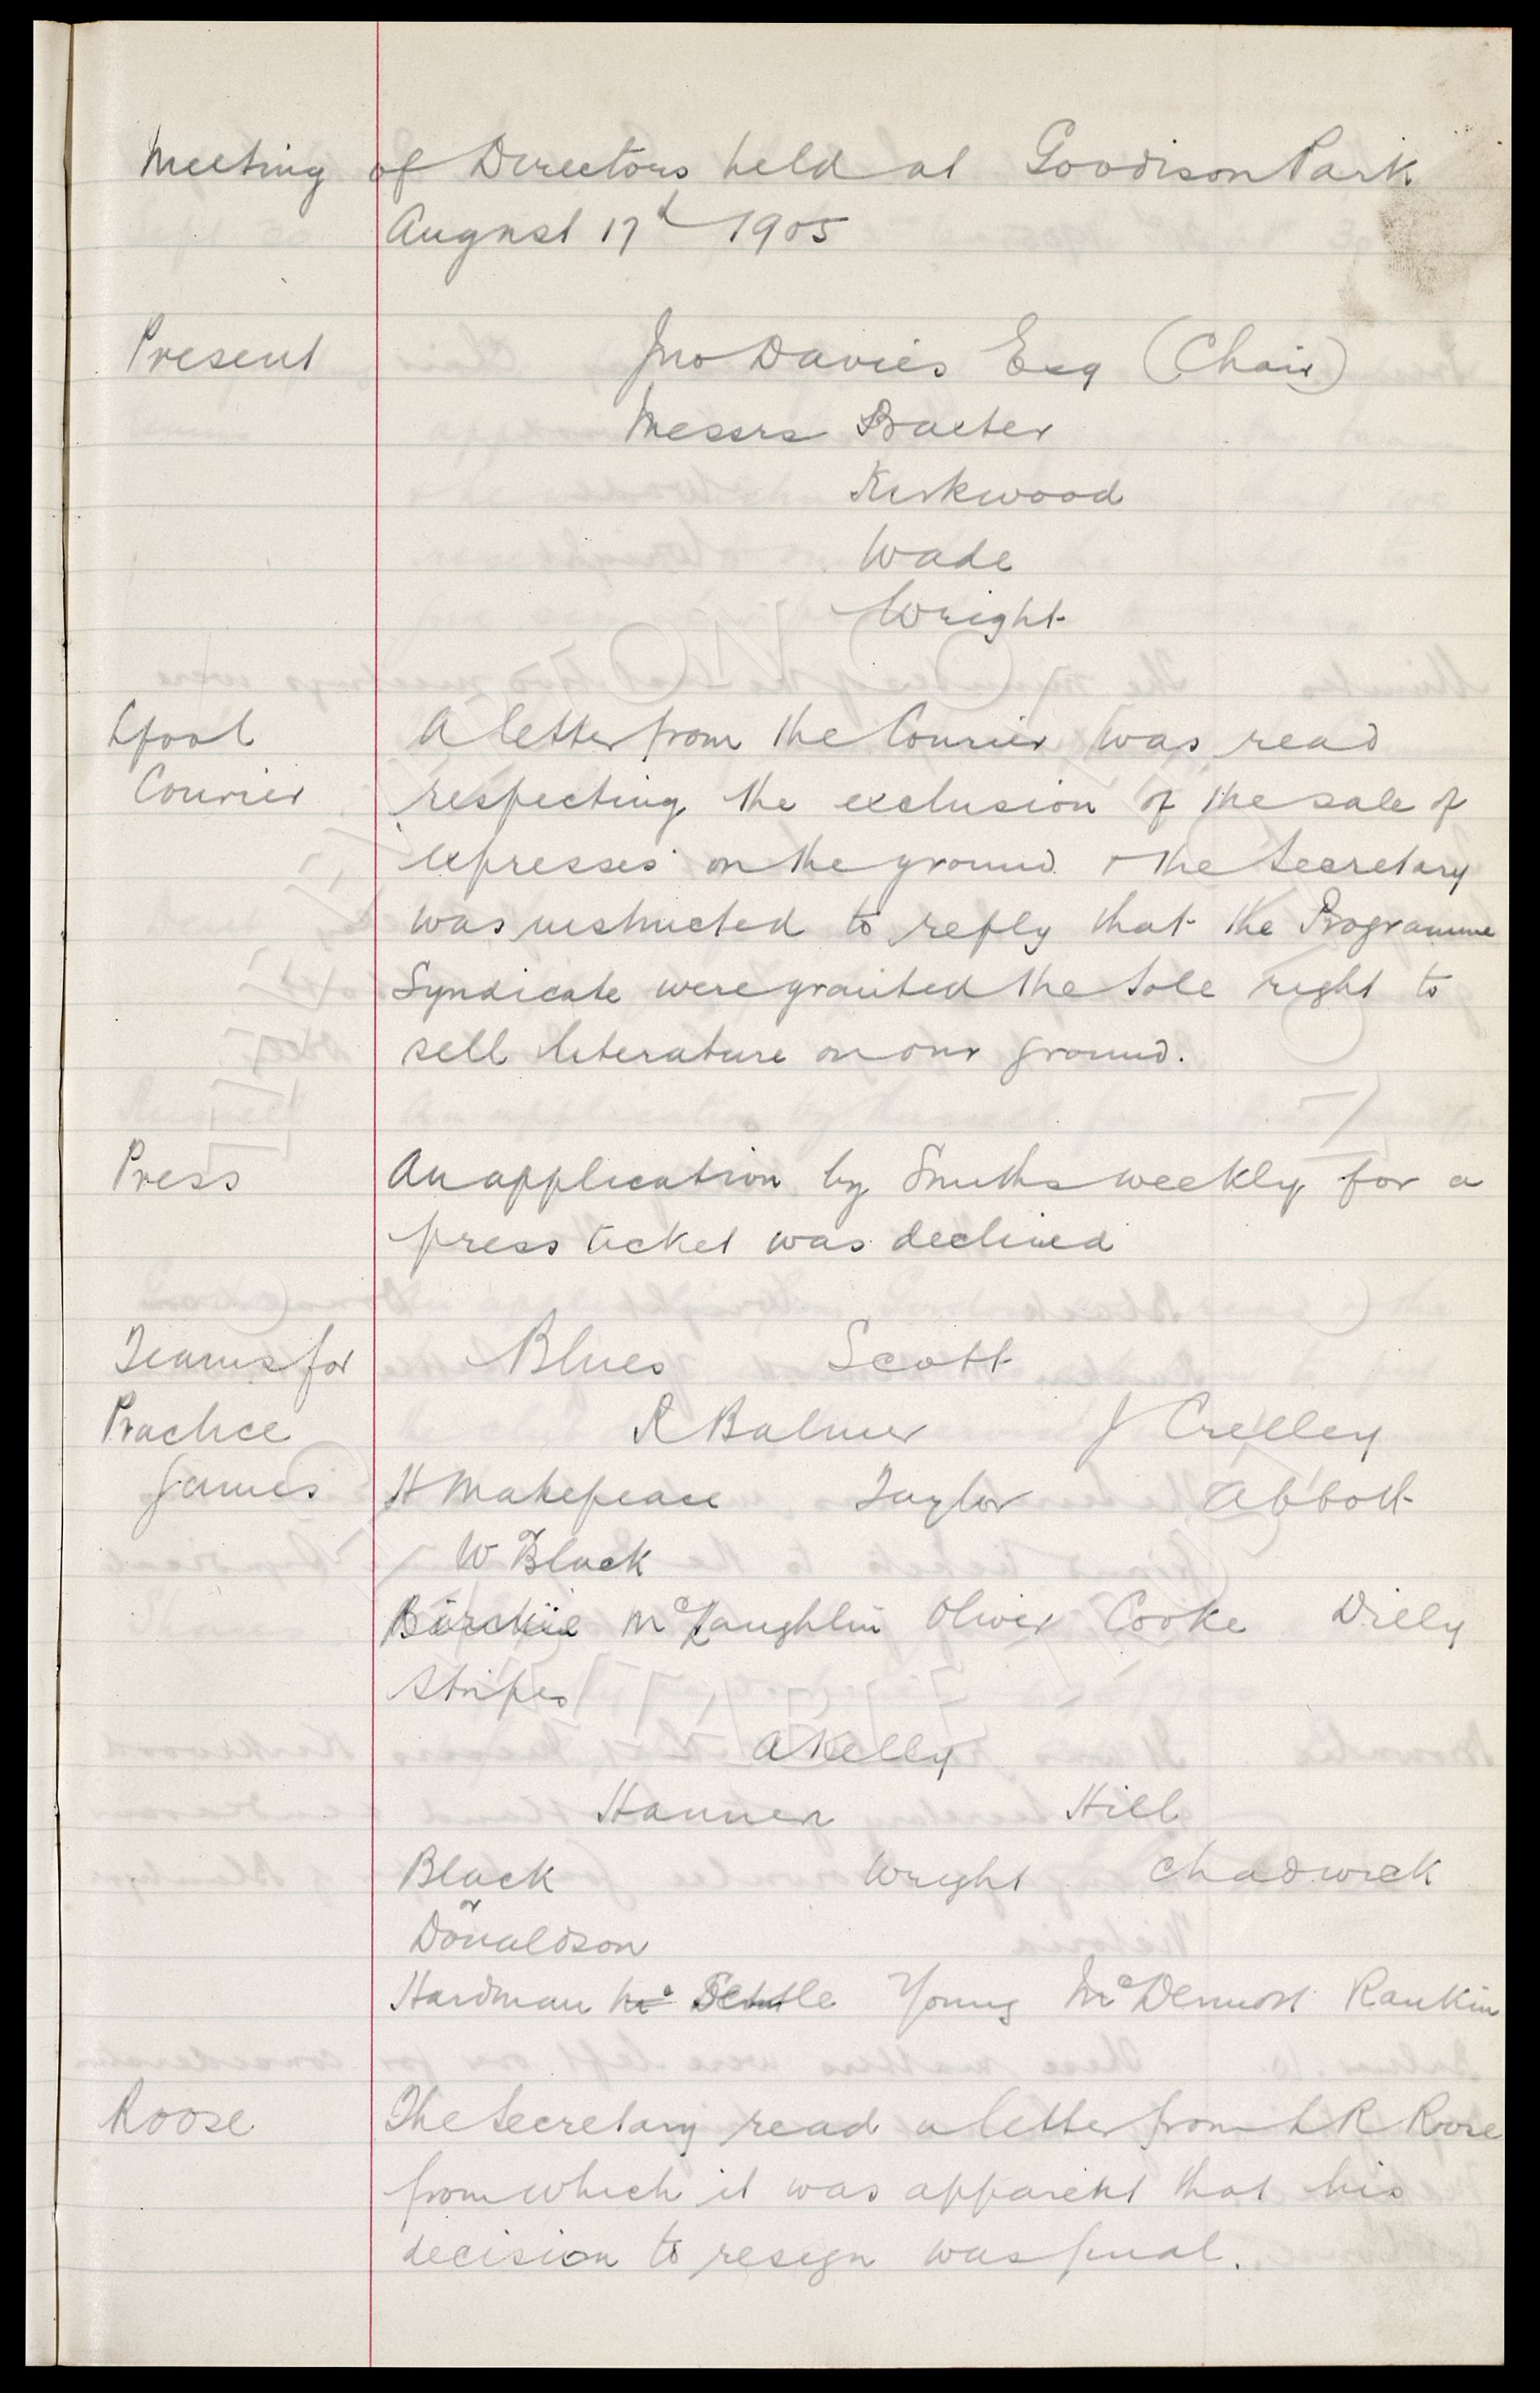 Meeting of Directors held at Goodison Park
August 17th 1905
Present Jno Davies Esq (Chair)
Messrs Baxter
Kirkwood
Wade
Wright
Lpool A letter from the Courier was read
Courier respecting the exclusion of the sale of
expresses on the ground & the Secretary
was instructed to reply that the Programme
Syndicate were granted the sole right to
sell literature on our ground.
Press An application by Smiths weekly for a
press ticket was declined
Teams for Blues Scott
Practice R Balmer J Crelley
Games H Makepeace Taylor Abbott
or
W Black
Birchie McLaughlin Oliver Cooke Dilly
Stripes
A Kelly
Hannen Hill
Black Wright Chadwick
or
Donaldson
Hardman Mc Settle Young McDermott Rankin
Roose The Secretary read a letter from L R Roose
from which it was apparent that his
decision to resign was final.